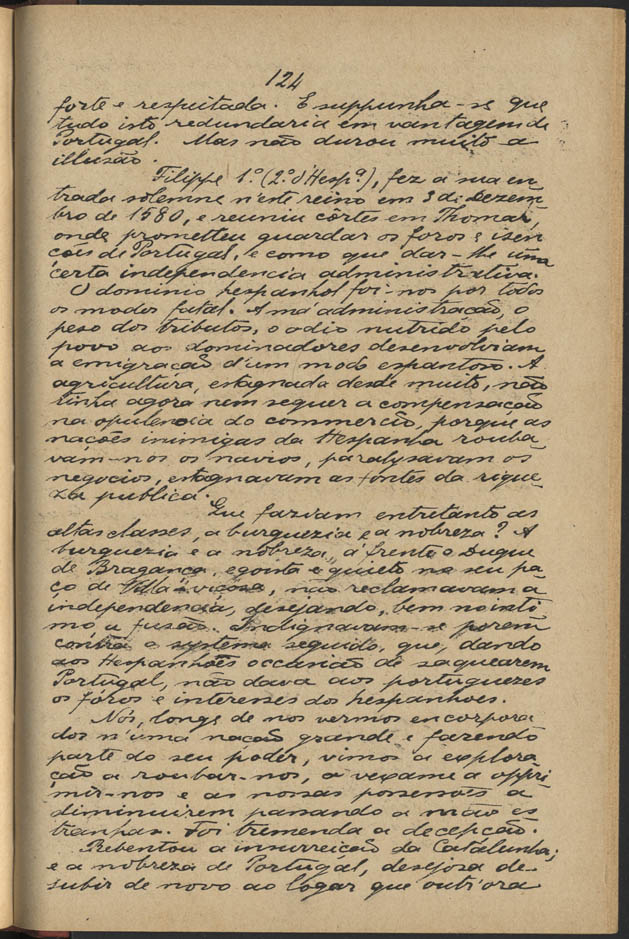 124
forte e respeitada. E suppunha-se que
tudo isto redundaria em vantagem de
Portugal. Mas não durou muito a
illusão.
Filippe 1.º (2.º d'Hespª), fez a sua en
trada solemne n'este reino em 3 de Dezem
bro de 1580, e reuniu côrtes em Thomar,
onde prometteu guardar os foros e isen
ções de Portugal, e como que dar-lhe uma
certa independencia administrativa.
O dominio hespanhol foi-nos por todos
os modos fatal. A má administração, o
peso dos tributos, o odio nutrido pelo
povo aos dominadores desenvolviam
a emigração d'um modo espantoso. A
agricultura, estagnada desde muito, não
tinha agora nem sequer a compensação
na opulencia do commercio, porque as
nações inimigas da Hespanha rouba
vam-nos os navios, paralysavam os
negocios, estagnavam as fontes da rique
za publica.
Que faziam entretanto as
altas classes, a burguezia e a nobreza? A
burguezia e a nobreza, á frente o Duque
de Bragança, egoista e quieto no seu pa
ço de Villa viçosa, não reclamavam a
independencia, desejando, bem no inti
mo a fusão. Indignavam-se porém
contra o systema seguido, que, dando
aos Hespanhóes occasião de saquearem
Portugal, não dava aos portuguezes
os fóros e interesses dos hespanhoes.
Nós, longe de nos vermos encorpora
dos n'uma nação grande e fazendo
parte do seu poder, vimos a explora
ção a roubar-nos, o vexame a oppri
mir-nos e as nossas possessões a
diminuirem passando a mão es
tranhas. Foi tremenda a decepção.
Rebentou a insurreição da Catalunha;
e a nobreza de Portugal, desejosa de
subir de novo ao logar que outr'ora